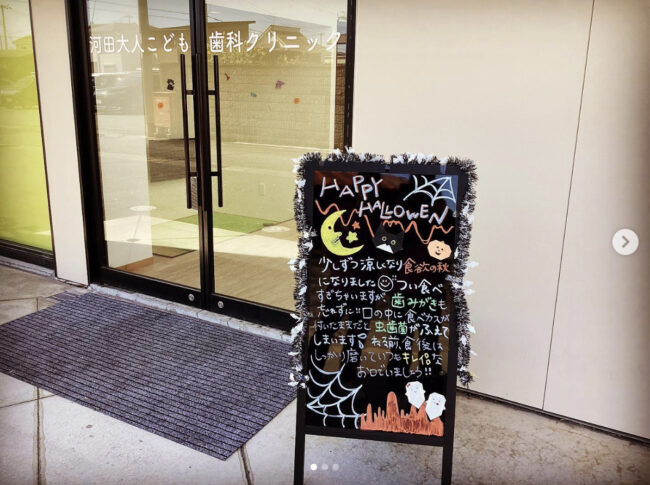 河田大人こども歯科クリニック
HAPPY
HALLOWEEN
少しずつ涼しくなり食欲の秋
になりました つい食べ
すぎちゃいますが 歯みがきも
忘れずに!! 口の中に食べカスが
付いたままだと 虫歯菌がふえて
しまいます! お間食後は
しっかり磨いていつもキレイな
お口でいましょう!!